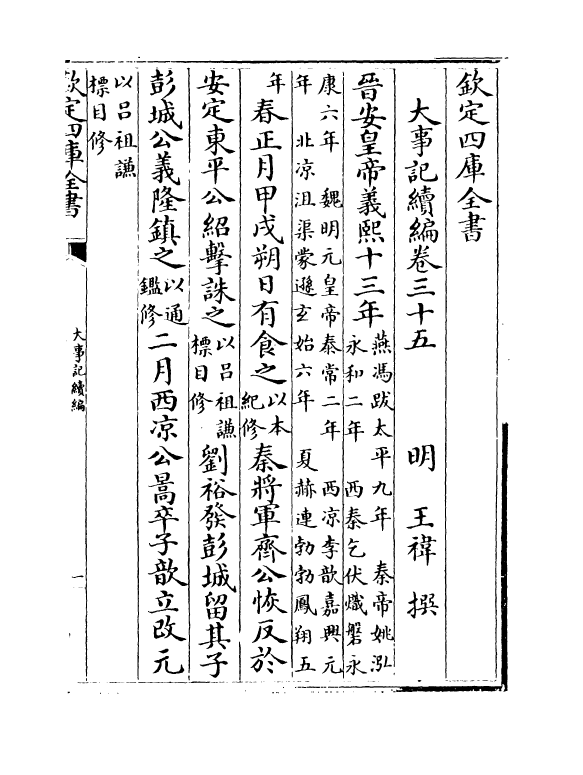 欽定四庫全書
大事記續編卷三十五 明 王褘 撰
晉安皇帝義熙十三年
燕馮跋太平九年 秦帝姚泓
永和二年 西秦乞伏熾磐永
康六年 魏明元皇帝泰常二年 西凉李歆嘉興元
年 北凉沮渠蒙遜玄始六年 夏赫連勃勃鳳翔五
年 春正月甲戌朔日有食之 以本紀修 秦將軍齊公恢反於
安定東平公紹擊誅之 以吕祖謙標目修 劉裕發彭城留其子
彭城公義隆鎮之 以通鑑修 二月西凉公暠卒子歆立改元
以吕祖謙
標目修
欽定四庫全書
大事記續編
一